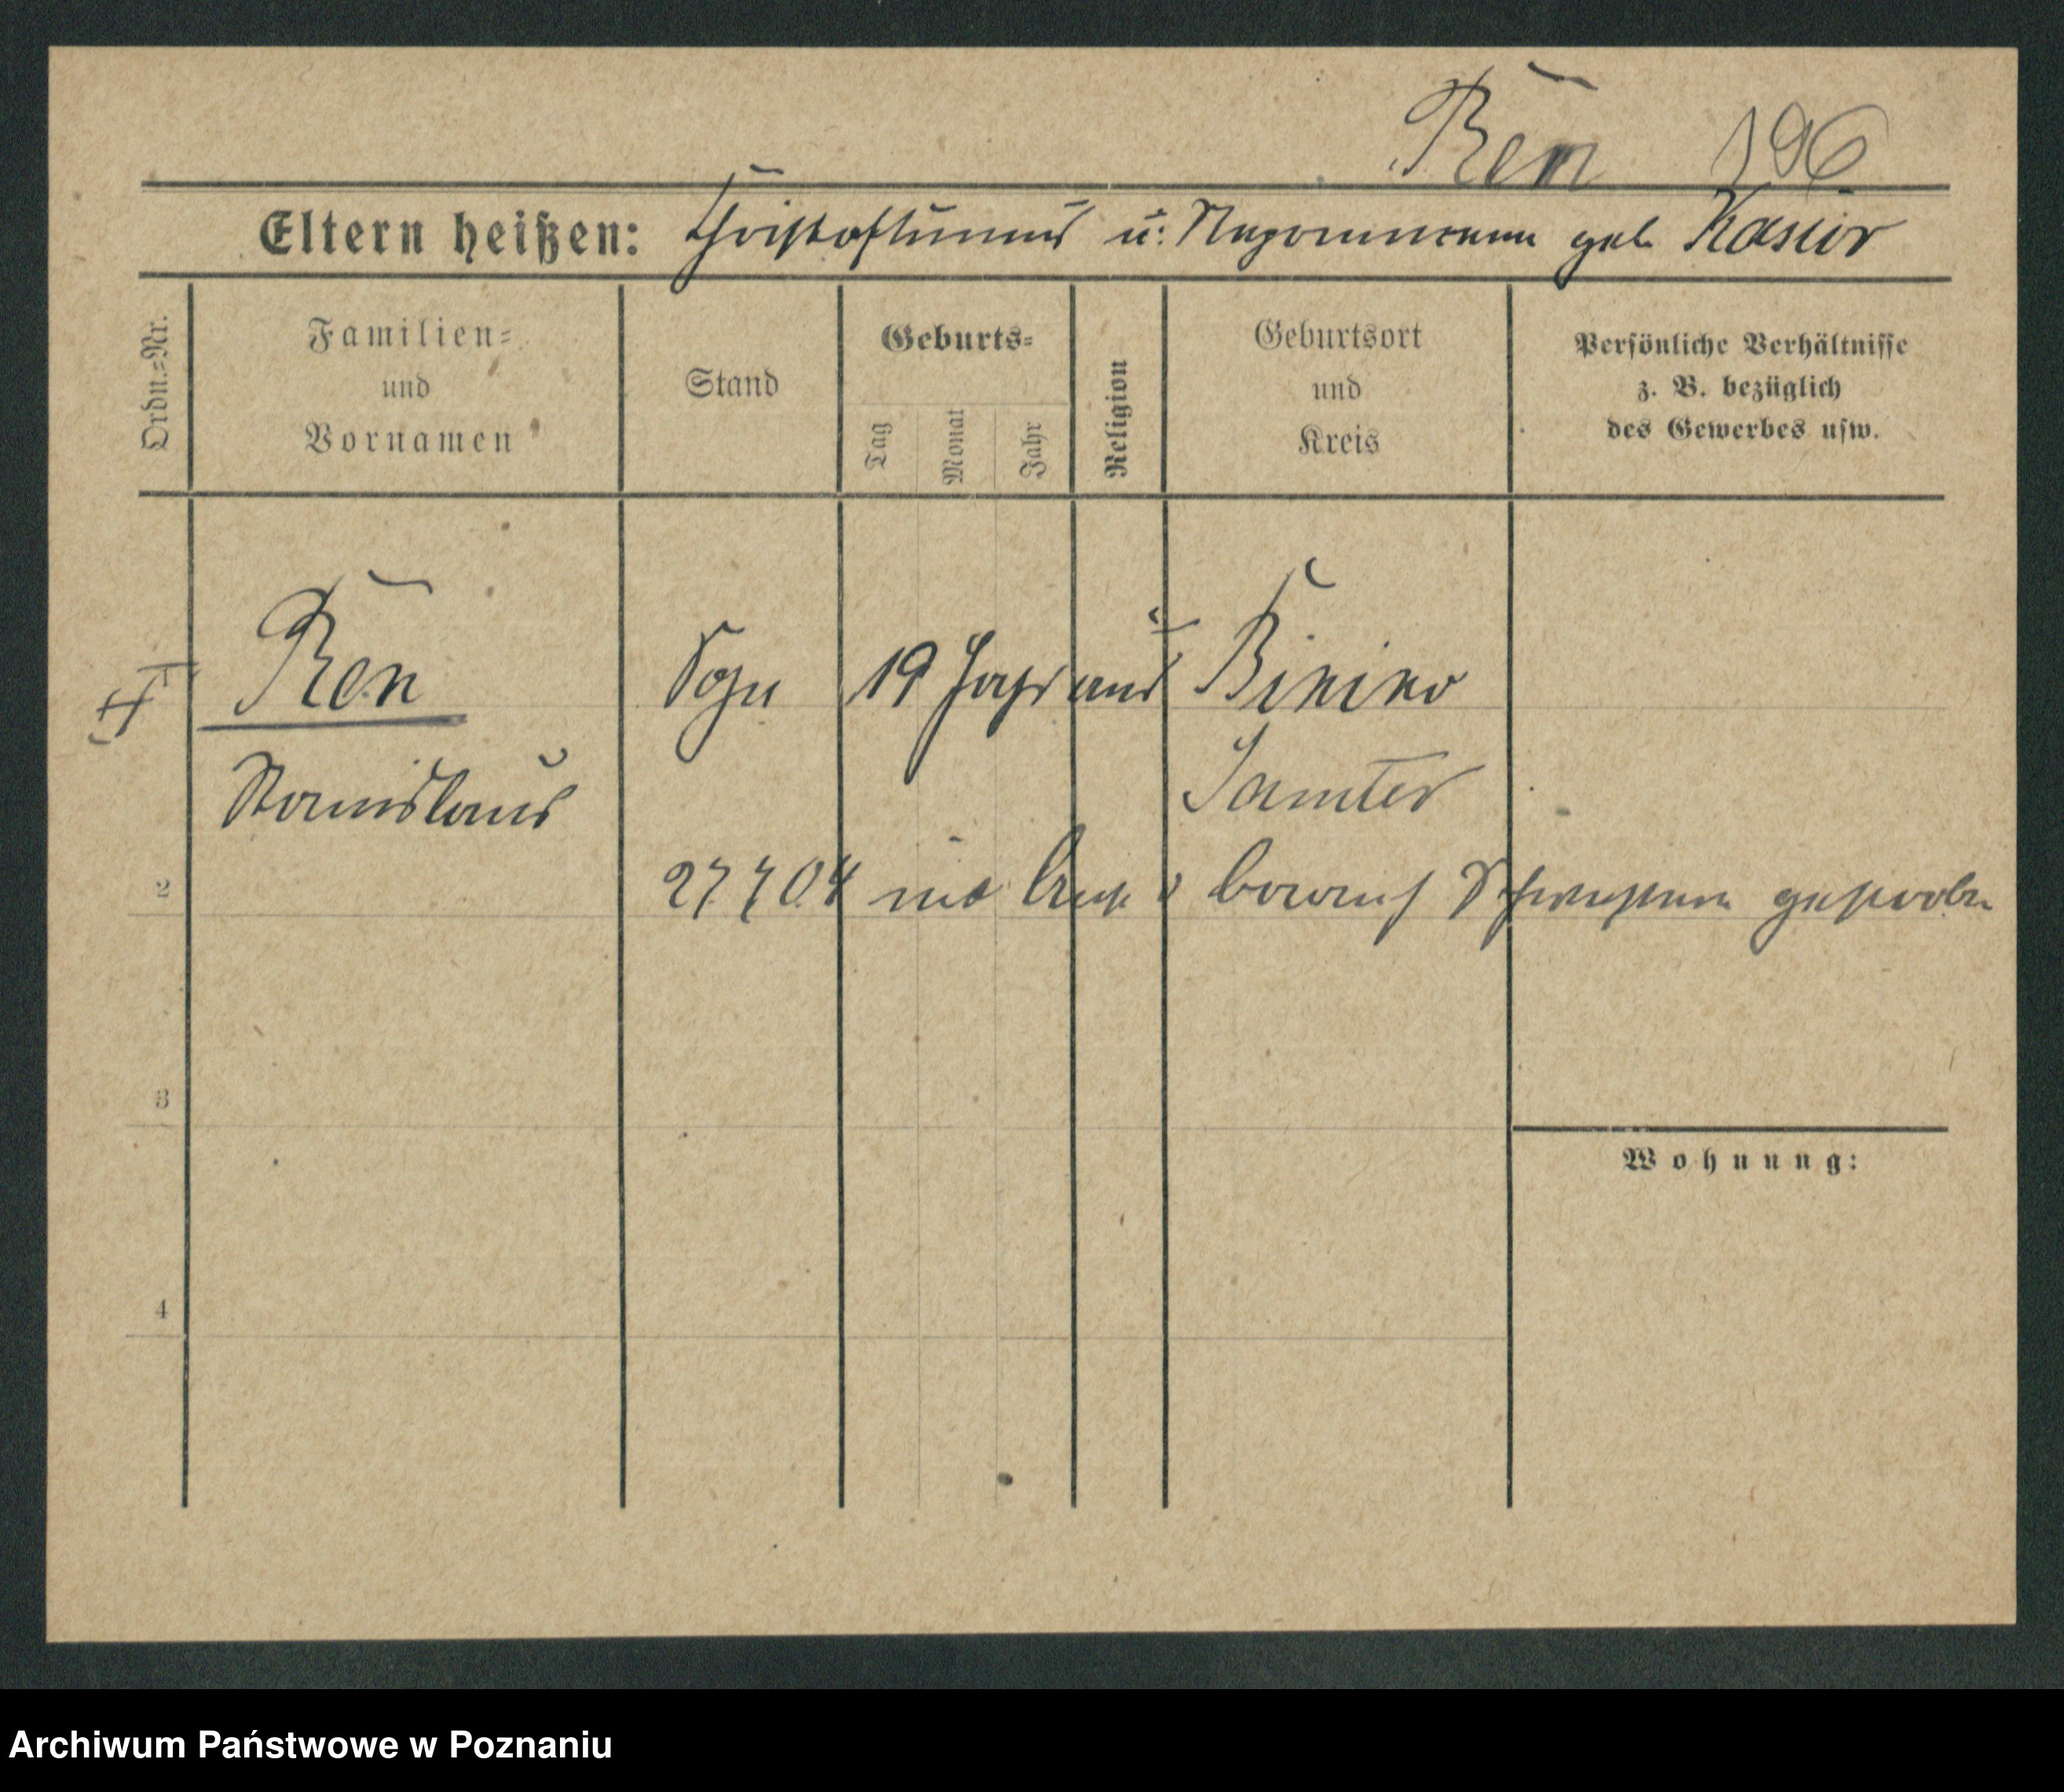 Ren 196
Eltern heißen: u: geb Kasior
Ordn.-Nr.
Familien-
und
Vornamen
Stand
Geburts-
Tag
Monat
Jahr
Religion
Geburtsort
und
Kreis
Persönliche Verhältnisse
z. B. bezüglich
des Gewerbes usw.
Ren Sohn 19 Jahr alt Binino
Stanislaus Samter
2 27 7 04 gestorben
3
Wohnung:
4
Archiwum Państwowe w Poznaniu